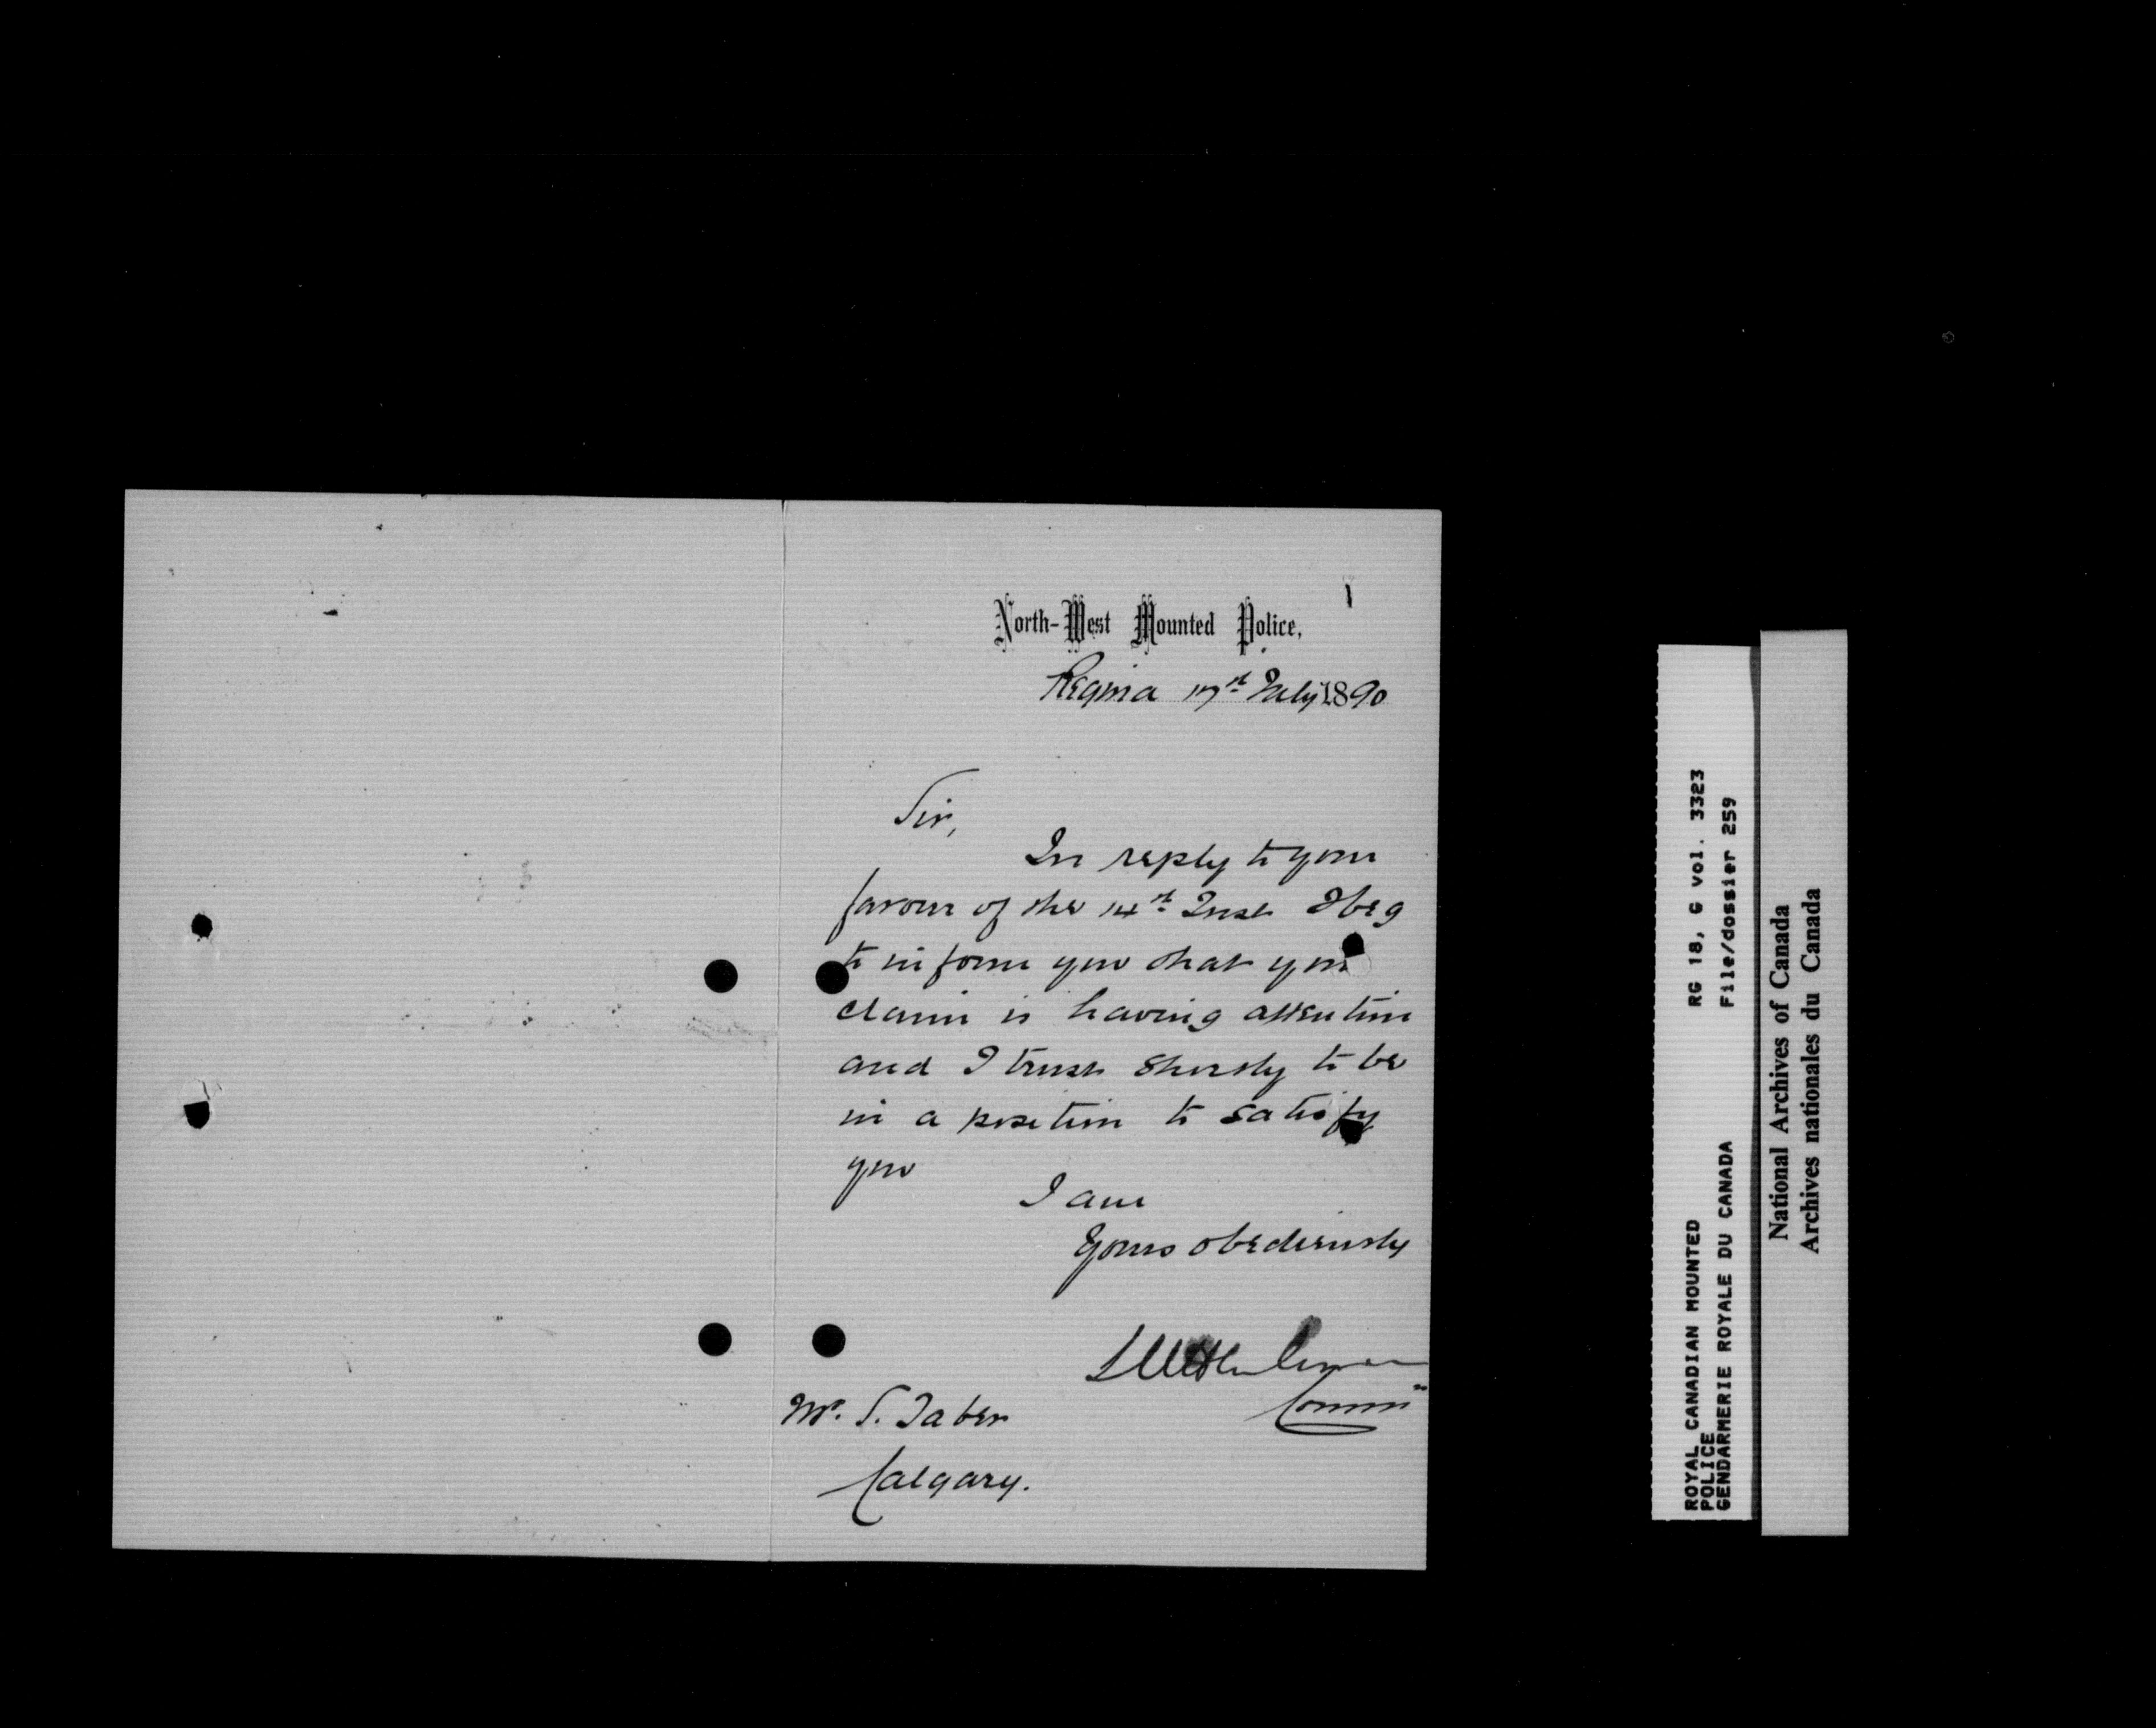 North-West Mounted Police,
Regina 17th July 1890
Sir,
In reply to your
favour of the 14th Inst I beg
to inform you that your
claim is having attention
and I trust shortly to be
in a position to satisfy
you
I am
Yours obediently
Commr
Mr. S. Taber
Calgary.
ROYAL CANADIAN MOUNTED RG 18, G vol. 3323
POLICE File/dossier 259
GENDARMERIE ROYALE DU CANADA
National Archives of Canada
Archives nationales du Canada